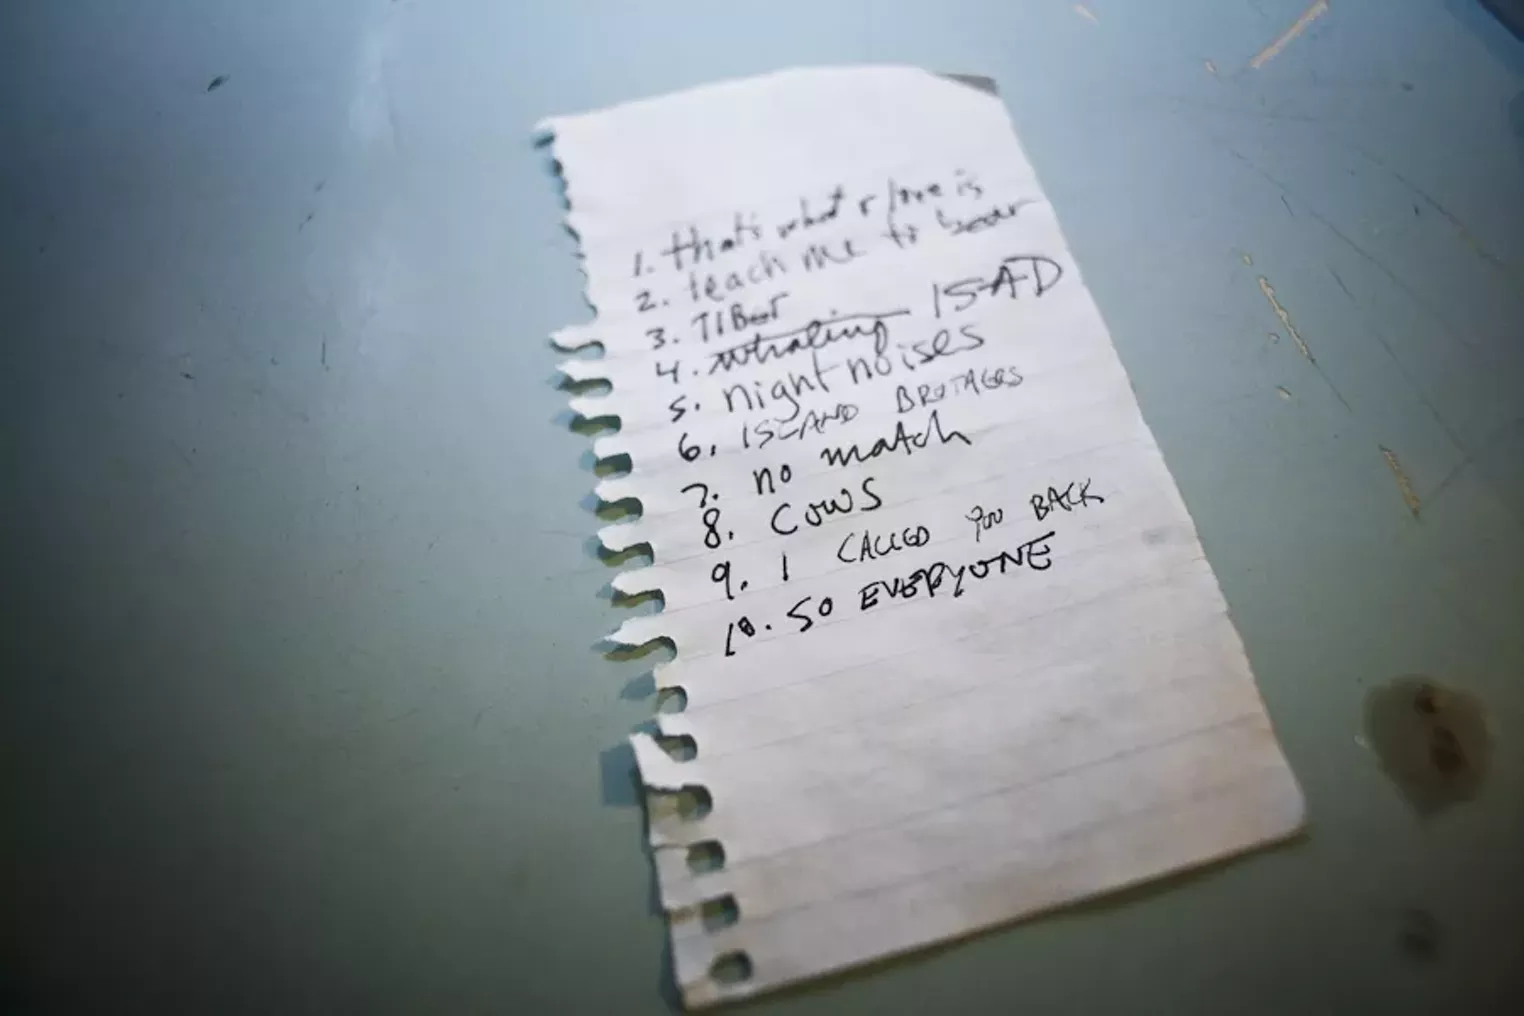 1. that's what r love is
2. teach me to bear
3. TIBer
4. whaling ISAD
5. night noises
6. ISLAND BROTAGES
7. no match
8. COWS
9. I CALLED YOU BACK
10. SO EVERYONE